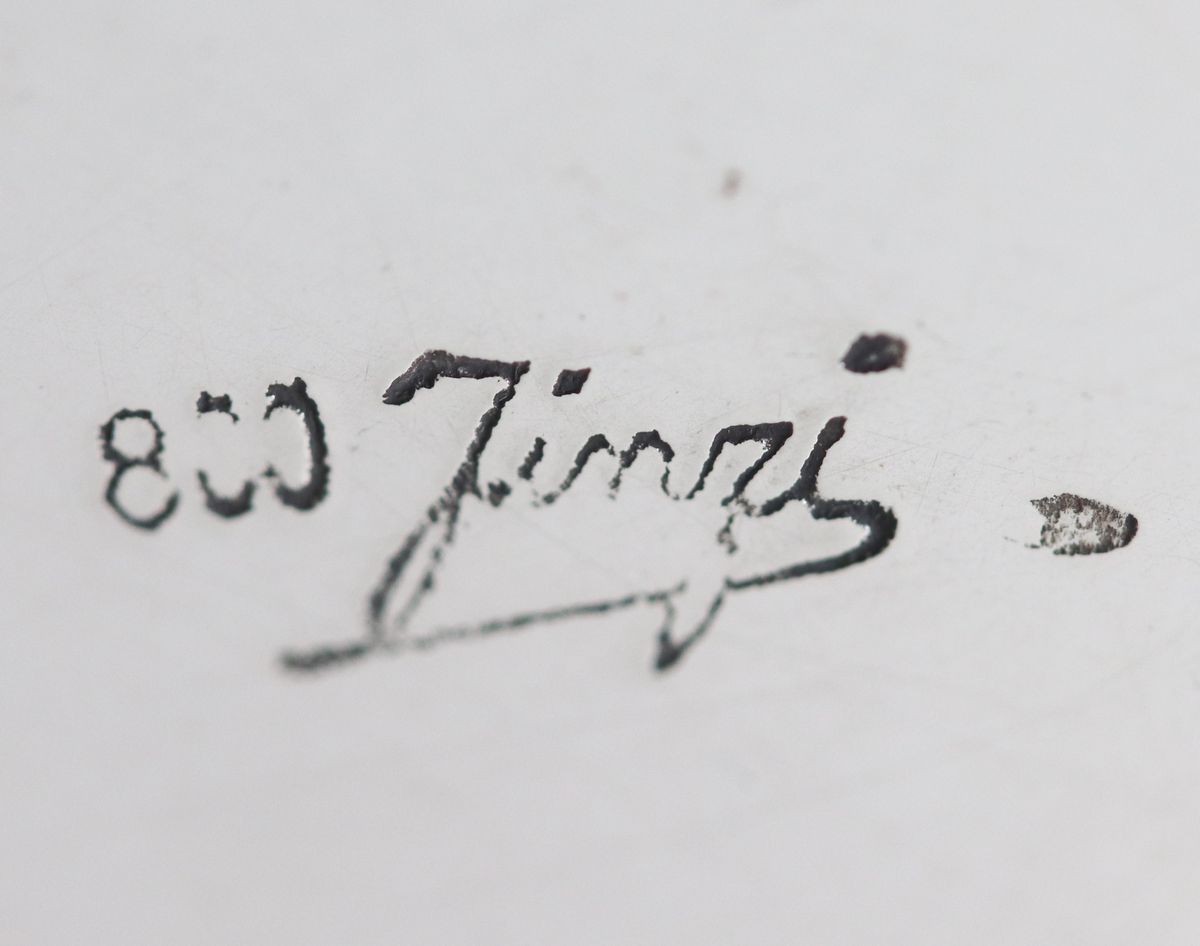 800 Finzi